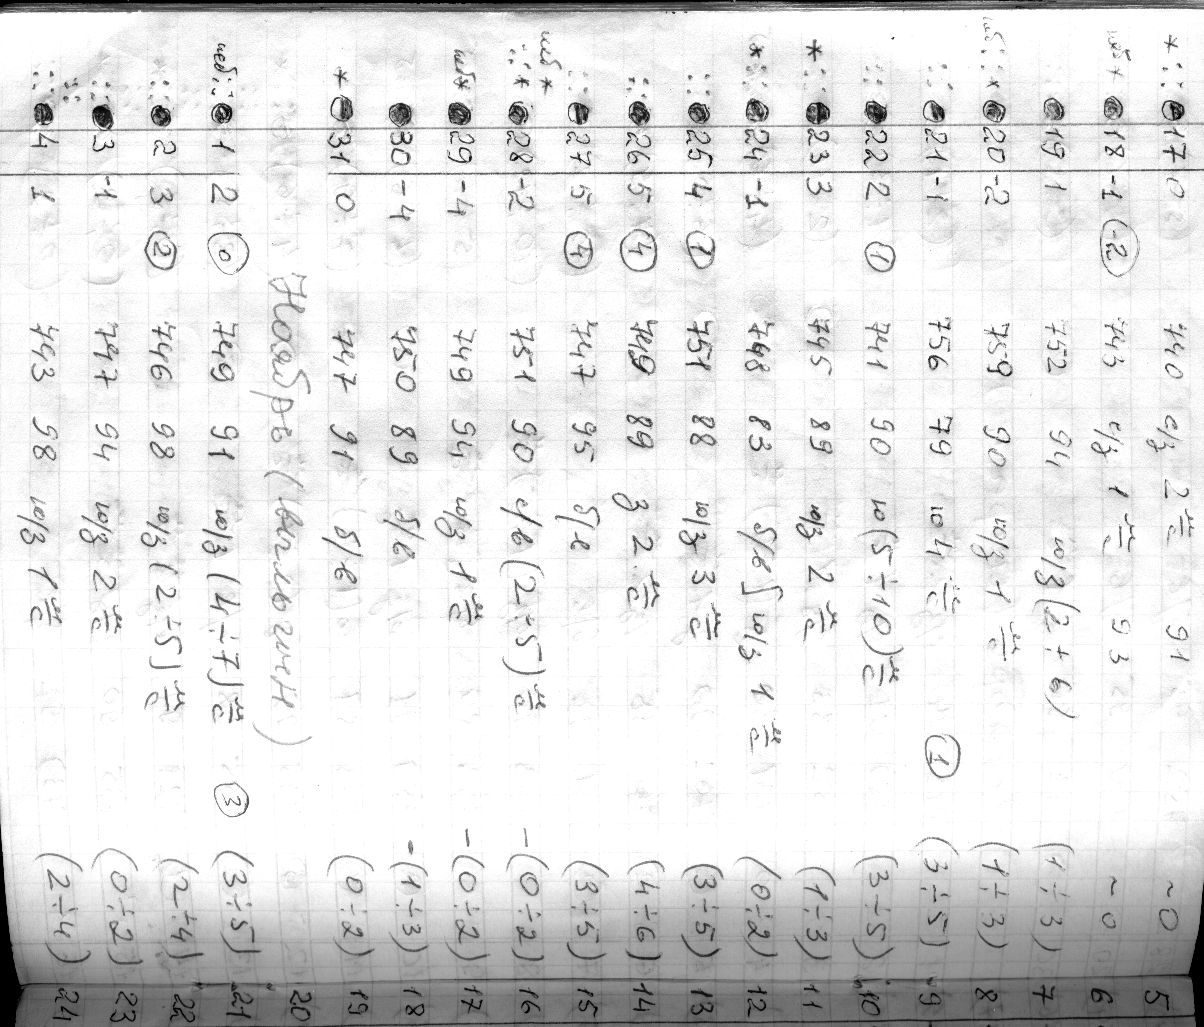 * ∴ 17 0 740 с/з 2 м/с 91 ~0 5
неб * 18 -1 (-2) 743 с/з 1 м/с 93 ~0 6
19 1 752 94 ю/з (2÷6) (1÷3) 7
неб ∴ * 20 -2 759 90 ю/з 1 м/с (1÷3) 8
∴ 21 -1 756 79 ю 4 м/с (1) (3÷5) 9
∴ 22 2 (1) 741 90 ю (5÷10) м/с (3÷5) 10
* ∴ 23 3 745 89 ю/з 2 м/с (1÷3) 11
* ∴ 24 -1 748 83 б/в ю/з 1 м/с (0÷2) 12
∴ 25 4 (1) 751 88 ю/з 3 м/с (3÷5) 13
∴ 26 5 (4) 749 89 з 2 м/с (4÷6) 14
неб * ∴ 27 5 (4) 747 95 б/в (3÷5) 15
∴ * 28 -2 751 90 с/в (2÷5) м/с -(0÷2) 16
неб * 29 -4 749 94 ю/з 1 м/с -(0÷2) 17
30 -4 750 89 б/в -(1÷3) 18
* 31 0 747 91 б/в (0÷2) 19
Ноябрь (Вильгин) 20
неб ∴ 1 2 (0) 749 91 ю/з (4÷7) м/с (3) (3÷5) "21
∴ 2 3 (2) 746 98 ю/з (2÷5) м/с (2÷4) "22
∴ 3 -1 747 94 ю/з 2 м/с (0÷2) 23
∴ 4 1 743 98 ю/з 1 м/с (2÷4) 24